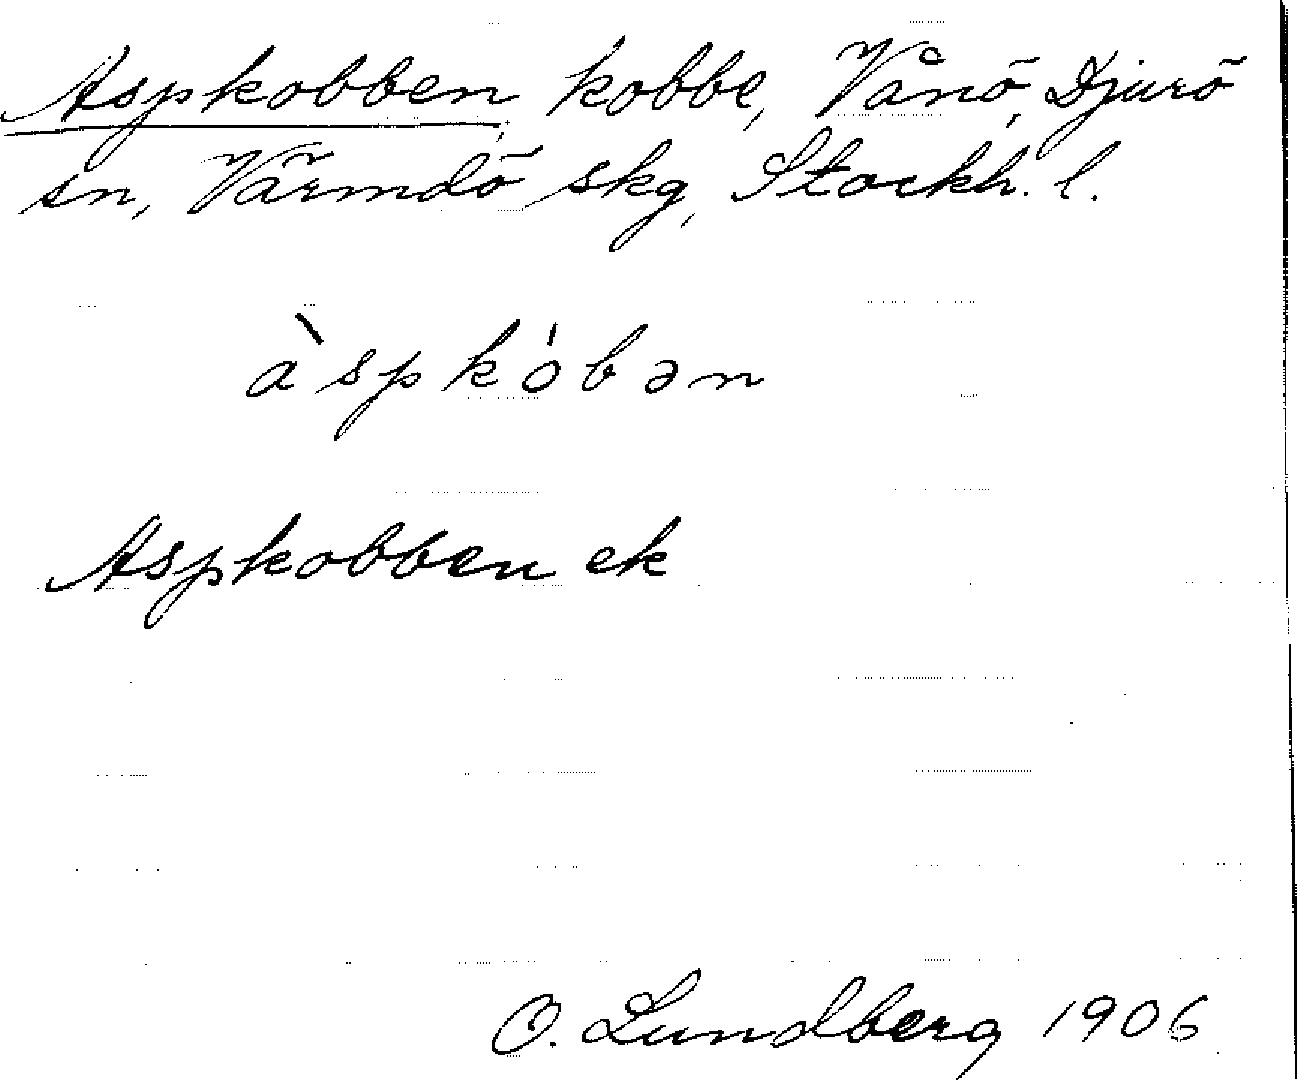 Aspkobben, kobbe, Vånö, Djurö
sn, Värmdö skg, Stockh. l.
àspkóbən
Aspkobben ek
O. Lundberg 1906